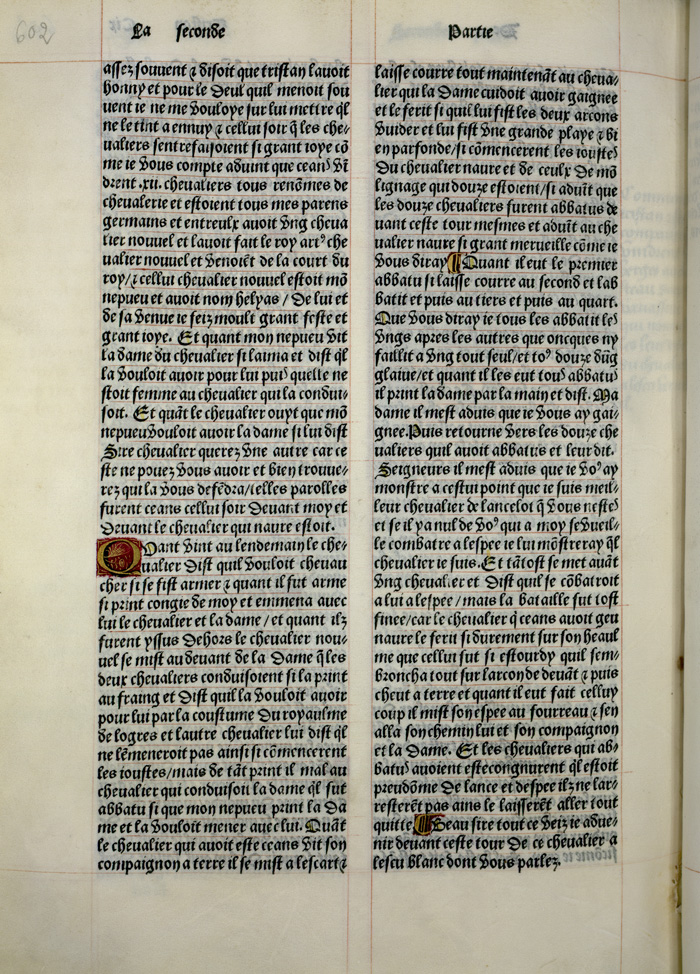 602
La seconde
Partie
assez souvent ⁊ disoit que tristan lauoit
honny et pour le deul quil menoit sou
uent ie ne me vouloye sur lui mettre q̄l
ne le tint a ennuy ⁊ cellui soir q̄ les che⸗
ualiers sentrefaisoient si grant ioye cō
me ie vous compte aduint que ceanˀ vī
drent .xii. cheualiers tous renōmes de
cheualerie et estoient tous mes parens
germains et entreulx auoit vng cheua
lier nouuel et lauoit fait le roy artˀ che
ualier nouuel et venoiēt de la court du
roy/⁊ cellui cheualier nouuel estoit mō
nepueu et auoit nom helyas / De lui et
de sa venue ie feiz moult grant feste et
grant ioye. Et quant mon nepueu vit
la dame du cheualier si laima et dist q̄l
la vouloit auoir pour lui puiˀ quelle ne
stoit femme au cheualier qui la condui⸗
soit. Et quāt le cheualier ouyt que mō
nepueu vouloit auoir la dame si lui dist
Sire cheualier querez vne autre car ce
ste ne pouez vous auoir et bien trouue⸗
rez qui la vous defēdra/telles parolles
furent ceans cellui soir deuant moy et
deuant le cheualier qui naure estoit.
Quant vint au lendemain le che⸗
ualier dist quil vouloit cheuau
cher si se fist armer ⁊ quant il fut arme
si print congie de moy et emmena auec
lui le cheualier et la dame / et quant ilz
furent yssus dehors le cheualier nou⸗
uel se mist au deuant de la dame q̄ les
deux cheualiers conduisoient si la print
au fraing et dist quil la vouloit auoir
pour lui par la coustume du royaulme
de logres et lautre cheualier lui dist q̄l
ne lēmeneroit pas ainsi si cōmencerent
les ioustes/mais de tāt print il mal au
cheualier qui conduisoit la dame q̄l fut
abbatu si que mon nepueu print la da
me et la vouloit mener auec lui. Quāt
le cheualier qui auoit este ceans vit son
compaignon a terre il se mist a lescart⁊
laisse courre tout maintenāt au cheua⸗
lier qui la dame cuidoit auoir gaignee
et le ferit si quil lui fist les deux arcons
vuider et lui fist vne grande playe ⁊ bi
en parfonde/si cōmencerent les iousteˀ
du cheualier naure et de ceulx de mō
lignage qui douze estoient/si aduīt que
les douze cheualiers furent abbatus de
uant ceste tour mesmes et aduīt au che
ualier naure si grant merueille cōme ie
vous diray ¶ Quant il eut le premier
abbatu si laisse courre au second et lab
batit et puis au tiers et puis au quart.
Que vous diray ie tous les abbatit leˀ
vngs apres les autres que oncques ny
faillit a vng tout seul/et toˀ douze dūg
glaiue/et quant il les eut touˀ abbatuˀ
il print la dame par la main et dist. Ma
dame il mest aduis que ie vous ay gai⸗
gnee. Puis retourne vers les douze che
ualiers quil auoit abbatus et leur dit.
Seigneurs il mest aduis que ie voˀ ay
monstre a cestui point que ie suis meil⸗
leur cheualier de lancelot q̄ vous nesteˀ
et se il ya nul de voˀ qui a moy se vueil⸗
le combatre a lespee ie lui mōstreray q̄l
cheualier ie suis. Et tātost se met auāt
vng cheualier et dist quil se cōbatroit
a lui a lespee / mais la bataille fut tost
finee/car le cheualier q̄ ceans auoit geu
naure le ferit si durement sur son heaul
me que cellui fut si estourdy quil sem⸗
broncha tout sur larcon de deuāt ⁊ puis
cheut a terre et quant il eut fait celluy
coup il mist son espee au fourreau ⁊ sen
alla son chemin lui et son compaignon
et la dame. Et les cheualiers qui ab⸗
batuˀ auoient este congnurent q̄l estoit
preudōme de lance et despee ilz ne lar⸗
resterēt pas ains le laisserēt aller tout
quitte ¶ Beau sire tout ce veiz ie adue⸗
nir deuant ceste tour de ce cheualier a
lescu blanc dont vous parlez.